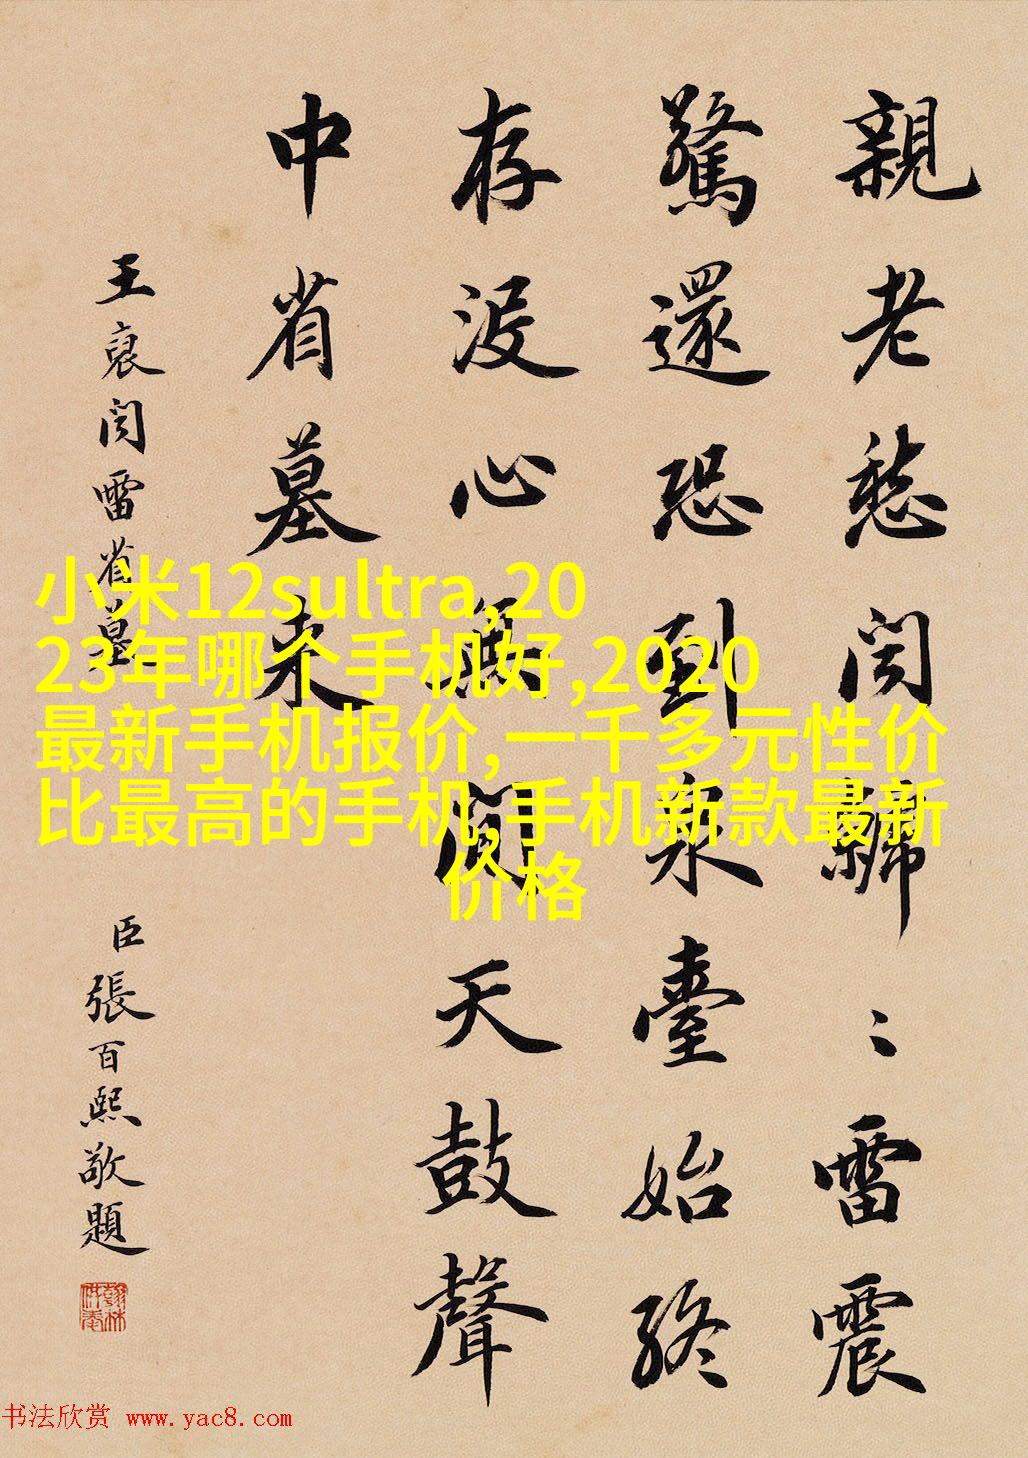 親老愁闻〻雷震
驚還恐到泉臺始終
存没心無間天鼓聲
中省墓来
王裒闻雷省墓
臣張百熙敬題
翰林供奉
小米12sultra,20
23年哪个手机好,2020
最新手机报价,一千多元性价
比最高的手机,手机新款最新
价格
书法欣赏 www.yac8.com